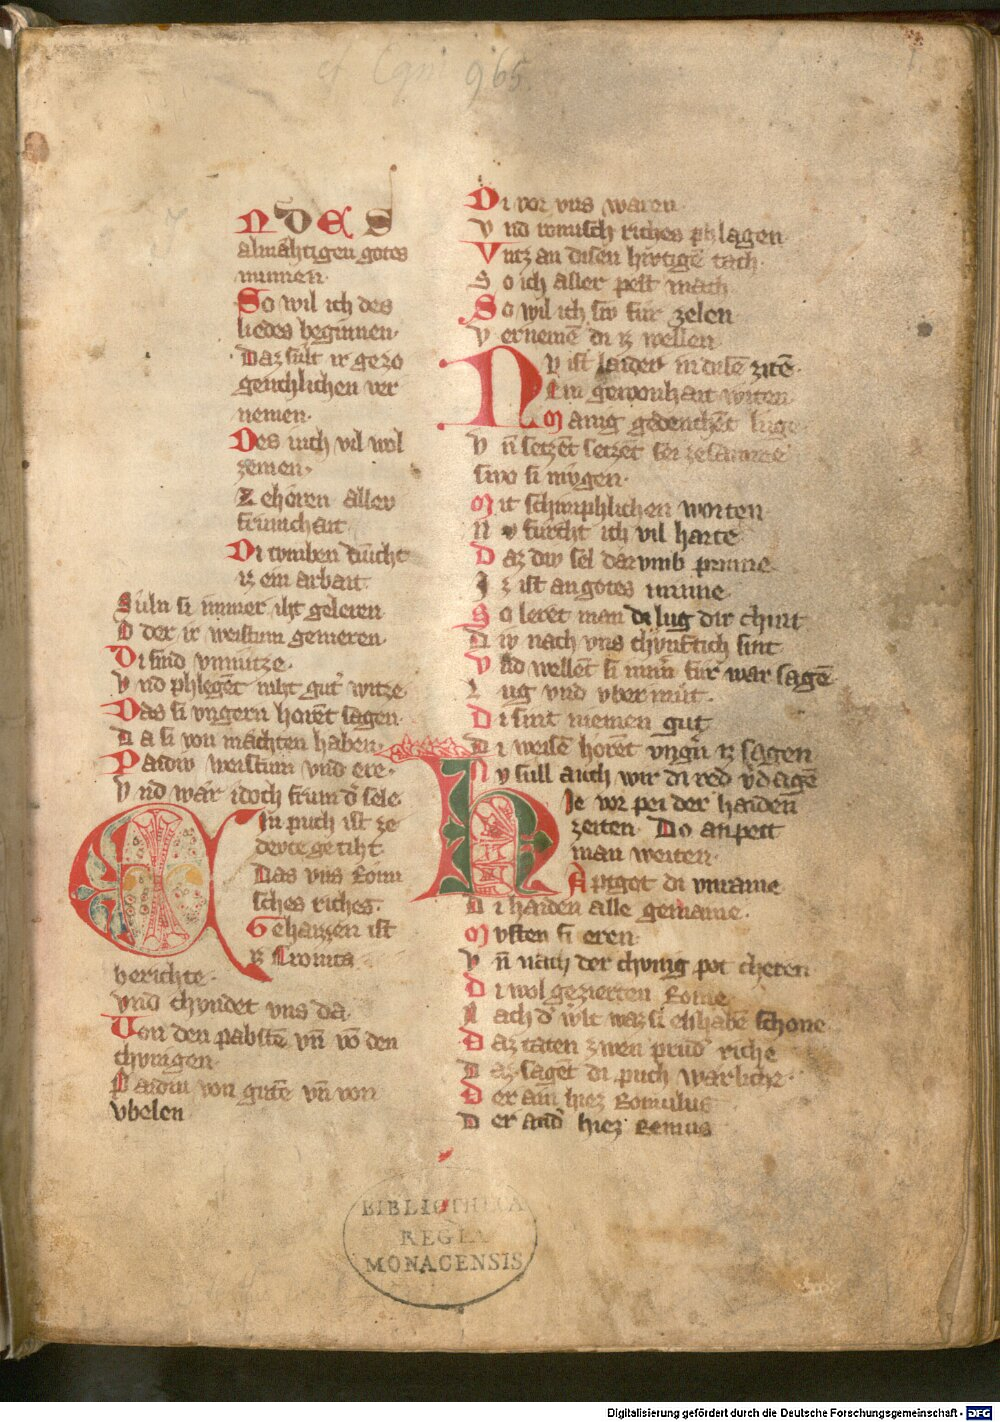 cf Cgm 965.
1.
NDES
almæhtigen gotes
minnen.
So wil ich des
liedes beginnen.
Daz sult ir gezo
genchlichen ver
nemen.
Des iuch vil wol
zemen.
Zehoren aller
frumchait
Di tomben duncht
iz ein arbait.
Suln si immer iht geleren
O der ir weistum gemeren.
Di sind vnnutze.
V nd phlegēt niht gut' witze
Das si vngern horēt sagen
D a si von machten haben
Paidiw weistum vnd ere.
V nd wär idoch frum d' sele
Ein puch ist ze
devtce getiht.
Das vns Romi
sches riches.
Gehaizzen ist
iz Cronica
berichte.
vnd chvndet vns da.
Von den pabstē vn̄ vō den
chvnigen.
Paidiu von gutē vn̄ von
vbelen
Di vor vns waren
V nd romisch riches phlagen
Vntz an disen hivtigē tach.
S o ich aller pest mach
So wil ich siv fur zelen
V ernemē di iz wellen
Nv ist laider in disē zitē.
Ein gewonhait witen
Manig gedenchēt luge
V n̄ setzēt setzēt sei zesamne
swo si mvgen.
Mit schimphlichen worten
N v furcht ich vil harte
D az div sel darvmb prinne
I z ist an gotes minne
So lerēt man di lug dir chint
D iv nach vns chvnftich sint
V nd wellēt si nim fur war sagē
L ug vnd vber mut.
Di sint niemen gut
D i weisē horēt vngn iz sagen
Nv sull auch wir di red v'dagē
Hie vor pei der haiden
zeiten. Do an pett
man weiten.
Aptgot di vnraine
D i haiden alle gemaine.
Mvsten si eren
V n̄ nach der chvnig pot cheren
Di wol gezierten Rome
Nach d' w'lt waz si elshabē schone
Daz taten zwen prud' riche
D az sagēt di puch warliche.
Der ain hiez Romulus
D er and' hiez Remus
BIBLIOTHECA
REGIA
MONACENSIS
Digitalisierung gefördert durch die Deutsche Forschungsgemeinschaft - DFG